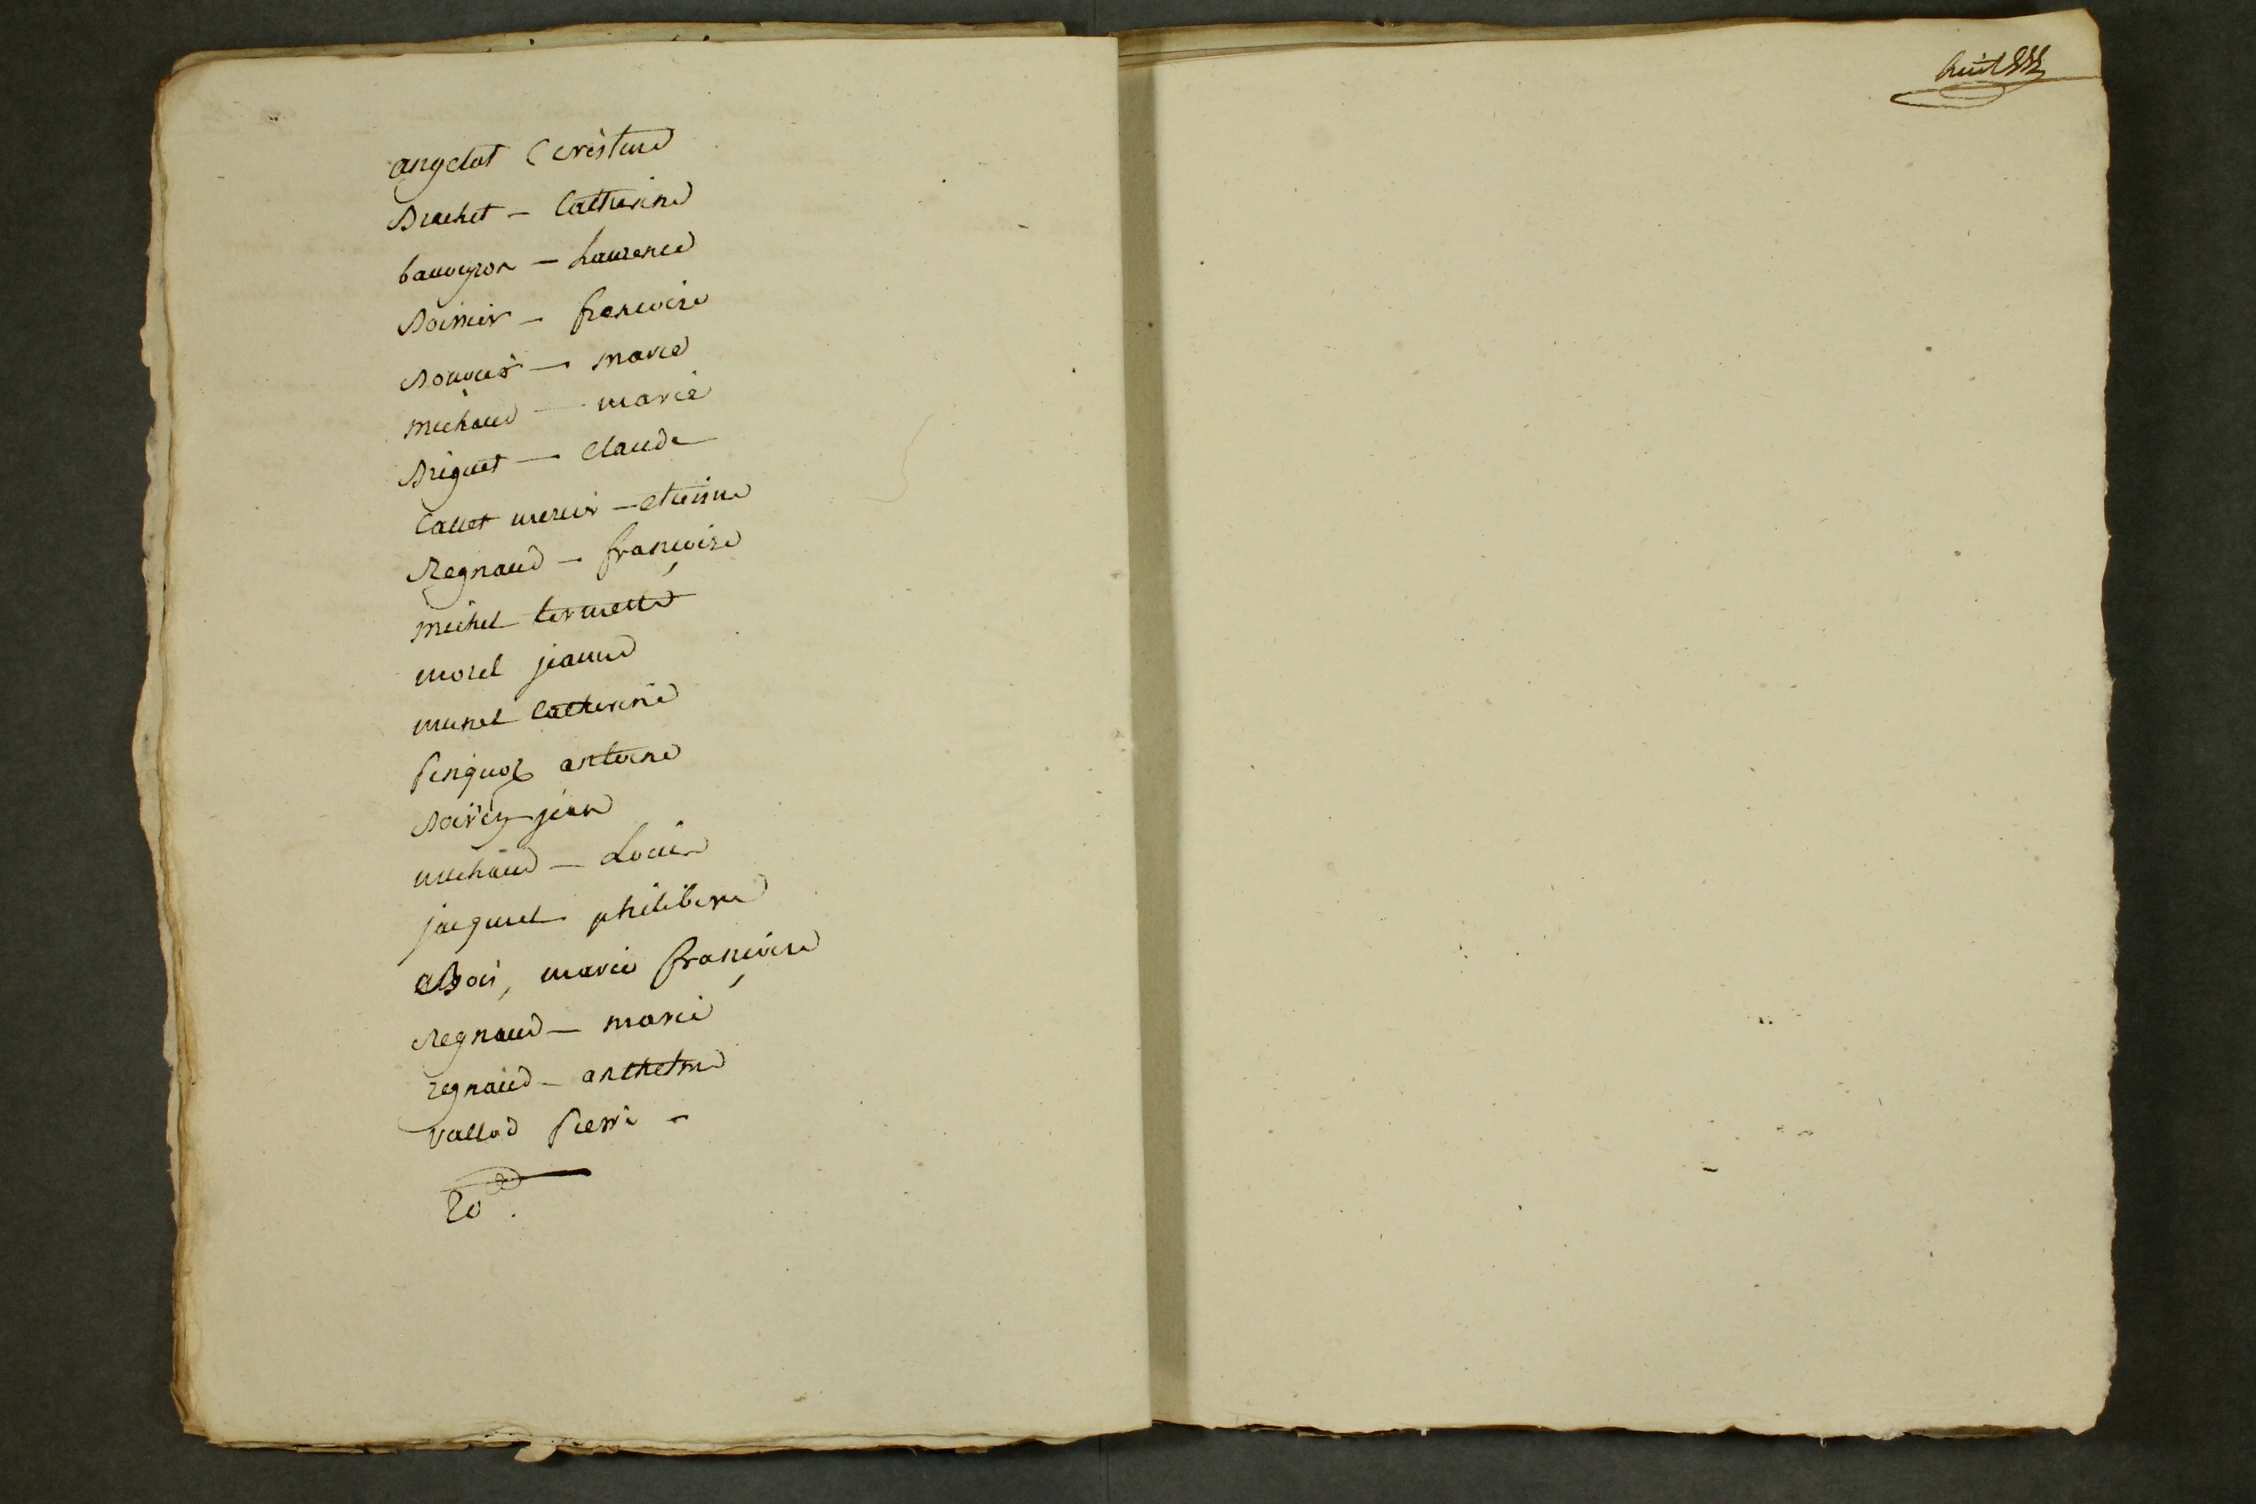 angelot Cristine
Brachet - Catherine
bauvyron - Laurence
françoise
marie
michaud - marie
Briguet - Claude
Callet mercier - etienne
Regnaud - françoise
michel
morel jeanne
munet Catherine
antoine
jean
michaud - Louise
jacquet philiberte
Bois, marie françoise
Regnaud - marie
regnaud - anthelme
Vallod Pierre -
20.
huit